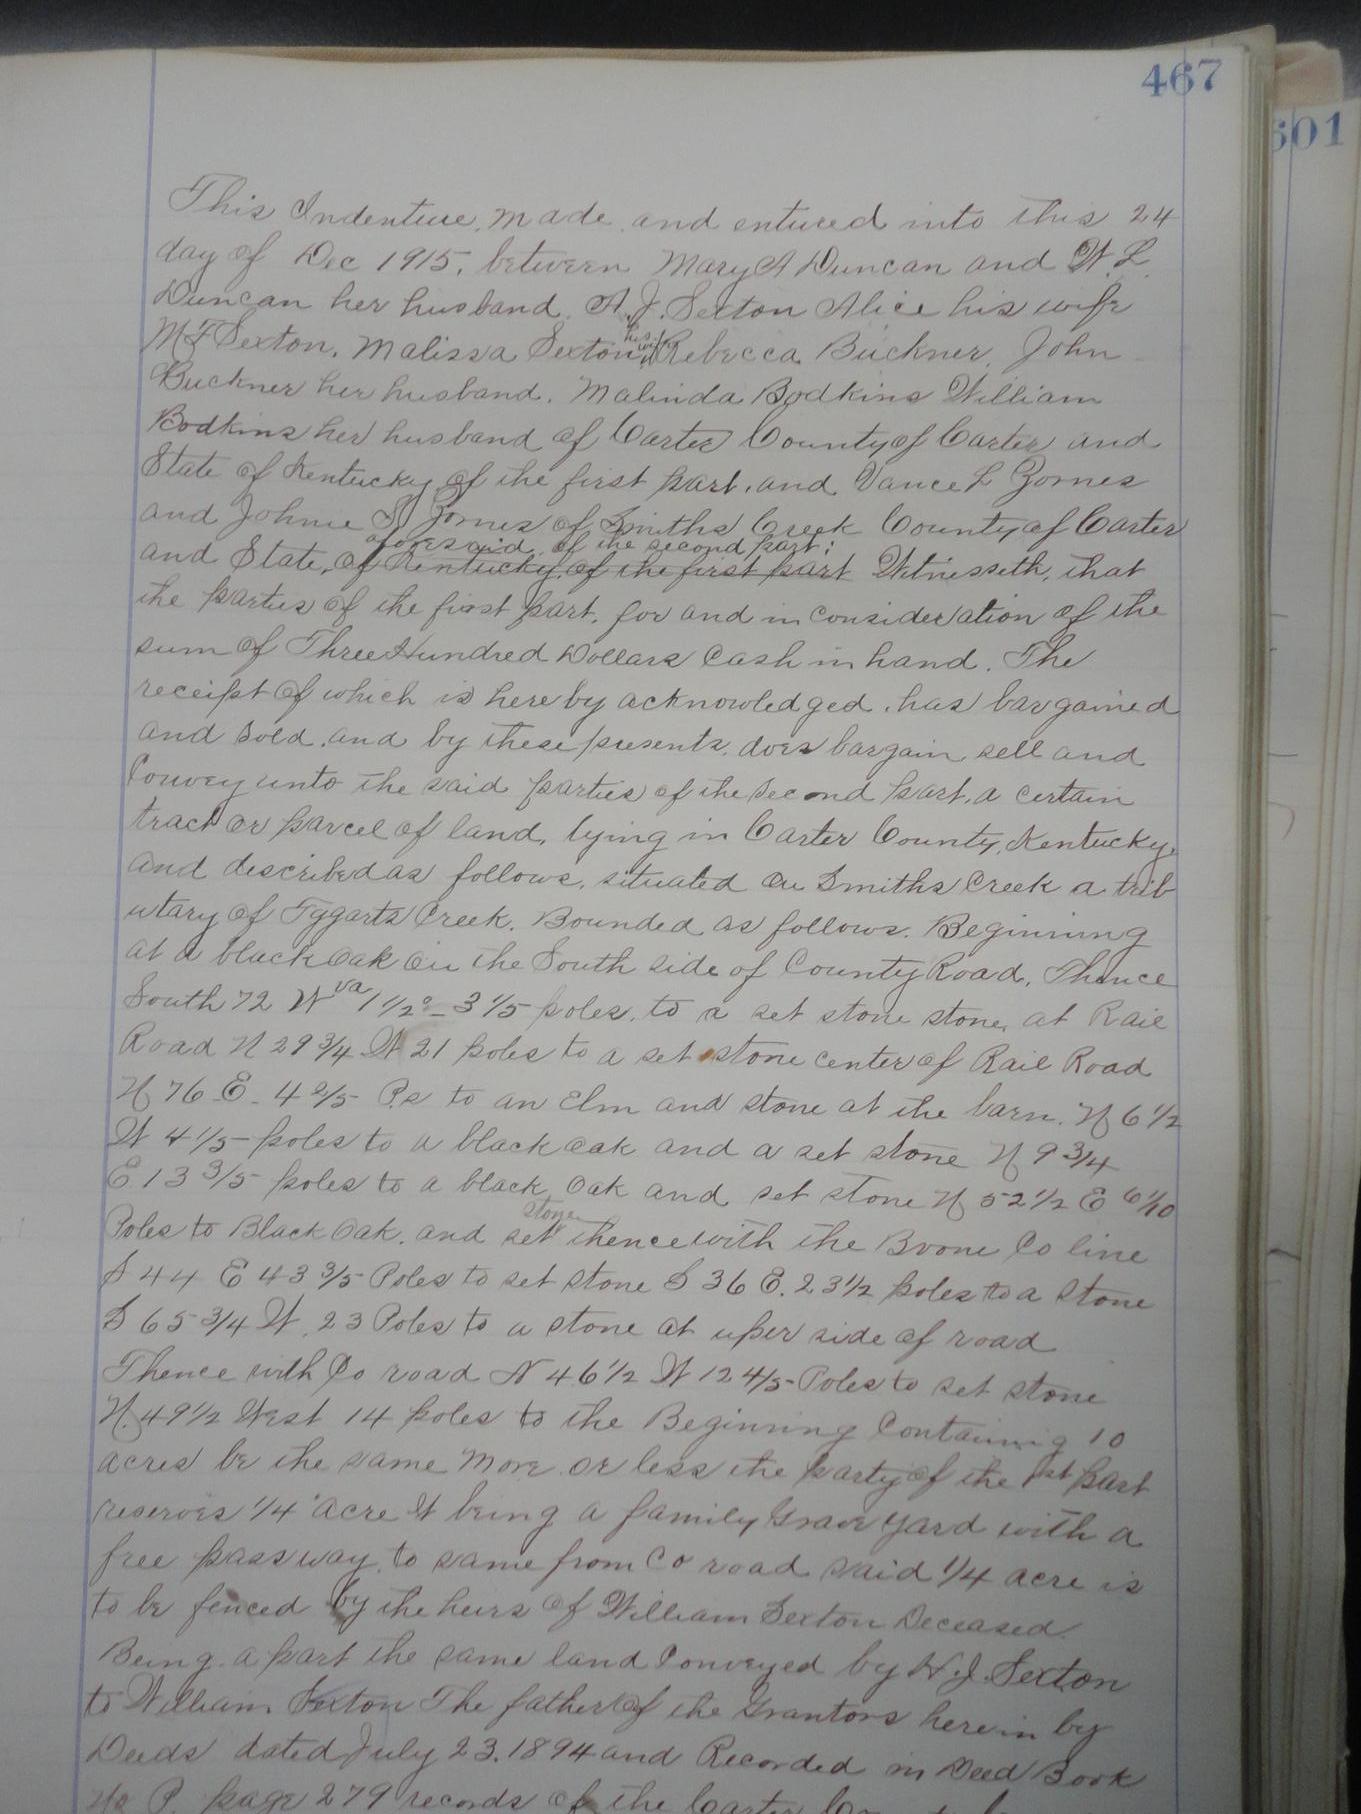 467
601
This Indenture, made and entered into this 24
day of Dec 1915, between Mary A Duncan and W. L.
Duncan her husband, A. J. Sexton Alice his wife
M F Sexton, Malissa Sexton, his wife Rebecca Buckner, John
Buckner her husband, Malinda Bodkins William
Bodkins her husband of Carter County of Carter and
State of Kentucky of the first part, and Vance L Zornes
and Johnie S. Zornes of Smiths Creek County of Carter
aforesaid, of the second part;
and State, of Kentucky, of the first part Witnesseth, that
the parties of the first part, for and in consideration of the
sum of Three Hundred Dollars Cash in hand. The
receipt of which is here by acknowledged, has bargained
and sold, and by these presents, does bargain, sell and
Convey unto the said parties of the second part, a certain
tract or parcel of land, lying in Carter County, Kentucky,
and described as follows, situated on Smiths Creek a trib
utary of Tygarts Creek. Bounded as follows. Beginning
at a black oak on the South side of County Road, Thence
South 72 W va 1 1/2° - 3 1/5 poles, to a set stone stone, at Rail
Road N 29 3/4 W 21 poles to a set stone center of Rail Road
N 76 E - 4 2/5 Ps to an Elm and stone at the barn. N 6 1/2
W 4 1/5 poles to a black oak and a set stone N 9 3/4
E 13 3/5 poles to a black Oak and set stone N 52 1/2 E 6 1/10
Poles to Black Oak, and set stone thence with the Boone Co line
S 44 E 43 3/5 Poles to set stone S 36 E. 23 1/2 poles to a stone
S 65 3/4 W. 23 Poles to a stone at uper side of road
Thence with Co road N 46 1/2 W 12 4/5 Poles to set stone
N. 49 1/2 West 14 poles to the Beginning Containing 10
acres be the same more or less the party of the 1st part
reserves 1/4 acre It being a family Grave yard with a
free passway to same from Co road said 1/4 acre is
to be fenced by the heirs of William Sexton Deceased.
Being a part the same land Conveyed by H. J. Sexton
to William Sexton The father of the Grantors herein by
Deeds dated July 23. 1894 and Recorded in Deed Book
No P. page 279 records of the Carter